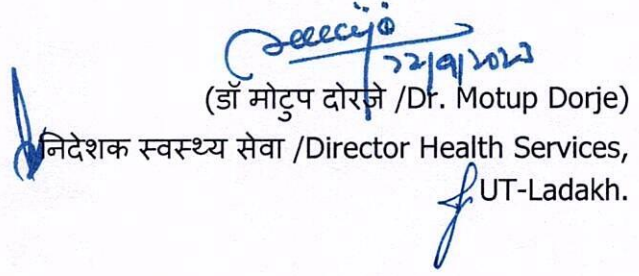 22/9/2023
(डॉ मोटुप दोरजे /Dr. Motup Dorje)
निदेशक स्वस्थ्य सेवा /Director Health Services,
UT-Ladakh.